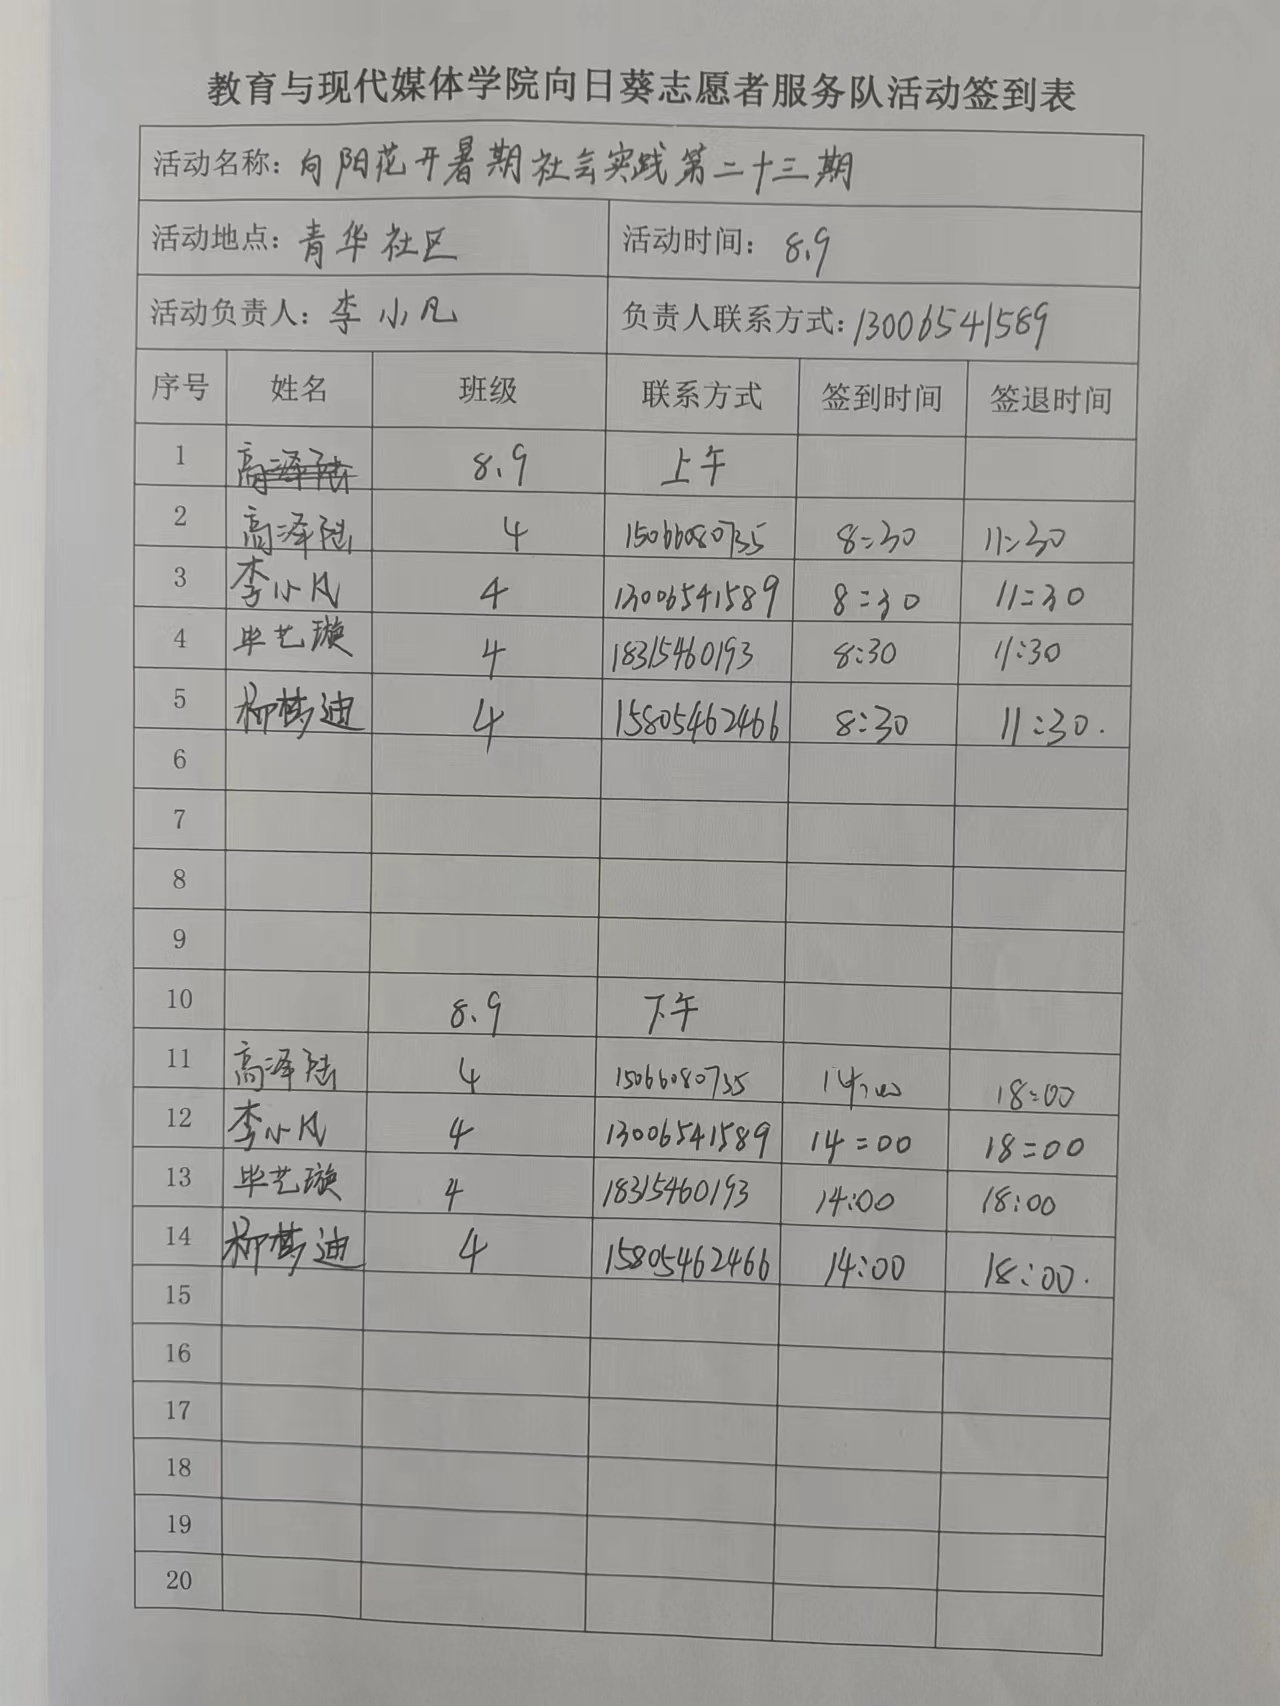 教育与现代媒体学院向日葵志愿者服务队活动签到表
活动名称：向阳花开暑期社会实践第二十三期
活动地点：青华社区 活动时间：8.9
活动负责人：李小凡 负责人联系方式：13006541589
序号 姓名 班级 联系方式 签到时间 签退时间
1 高泽陆 8.9 上午
2 高泽陆 4 15066080735 8:30 11:30
3 李小凡 4 13006541589 8:30 11:30
4 毕艺璇 4 18315460193 8:30 11:30
5 柳梦迪 4 15805462466 8:30 11:30.
6
7
8
9
10 8.9 下午
11 高泽陆 4 15066080735 14:00 18:00
12 李小凡 4 13006541589 14:00 18:00
13 毕艺璇 4 18315460193 14:00 18:00
14 柳梦迪 4 15805462466 14:00 18:00.
15
16
17
18
19
20